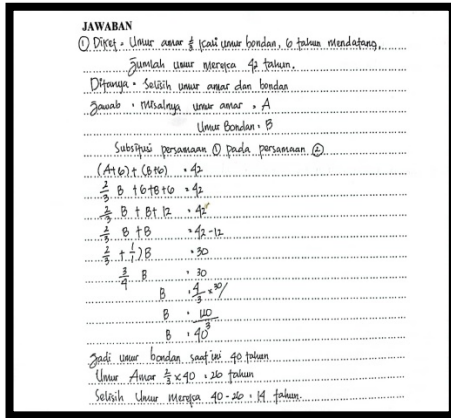 JAWABAN
① Diket = Umur amar 2/3 kali umur bondan, 6 tahun mendatang,
Jumlah umur mereka 42 tahun.
Ditanya = Selisih umur amar dan bondan
Jawab : misalnya umur amar = A
Umur Bondan = B
Subsitusi persamaan ① pada persamaan ②
(A+6) + (B+6) = 42
2/3 B + 6+B+6 = 42
2/3 B + B + 12 = 42
2/3 B + B = 42-12
2/3 + 1/1) B = 30
3/4 B = 30
B = 4/3 × 30/
B = 120/3
B = 40
Jadi umur bondan saat ini 40 tahun
Umur Amar 2/3 × 40 = 26 tahun
Selisih Umur mereka 40 - 26 = 14 tahun.